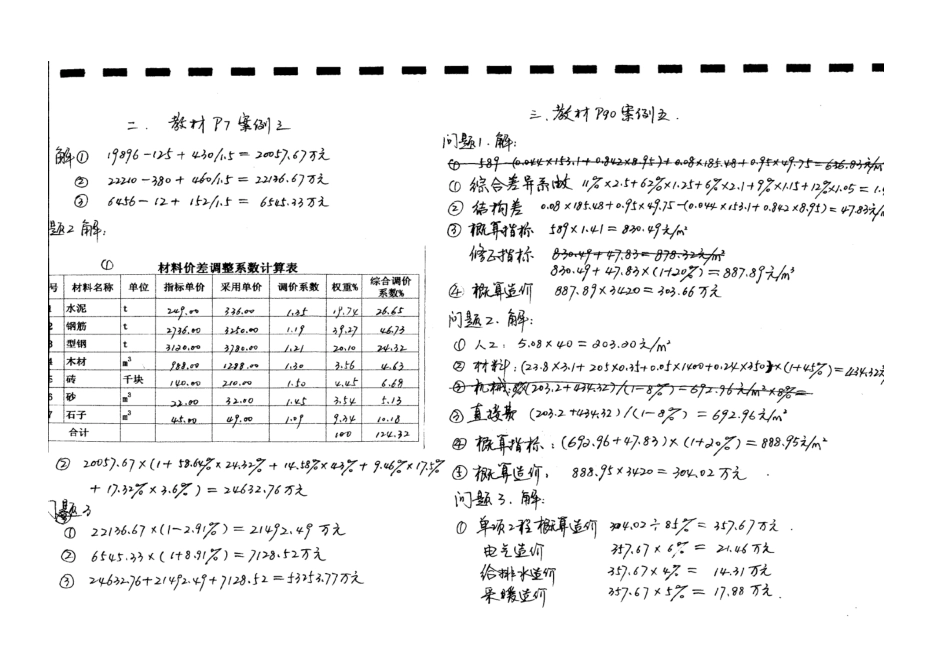 二、教材P7案例三
解① 19896-125+430/1.5=20057.67万元
② 22210-380+460/1.5=22136.67万元
③ 6456-12+152/1.5=6545.33万元
题2 解:
①
材料价差调整系数计算表
号 材料名称 单位 指标单价 采用单价 调价系数 权重% 综合调价系数%
1 水泥 t 249.00 336.00 1.35 19.74 26.65
2 钢筋 t 2736.00 3250.00 1.19 39.27 46.73
3 型钢 t 3120.00 3780.00 1.21 20.10 24.32
4 木材 m³ 988.00 1288.00 1.30 3.56 4.63
5 砖 千块 140.00 210.00 1.50 4.45 6.68
6 砂 m³ 22.00 32.00 1.45 3.54 5.13
7 石子 m³ 45.00 49.00 1.09 9.34 10.18
合计 100 124.32
② 20057.67×(1+58.64%×24.32%+14.58%×4.3%+9.46%×17.5%
+17.32%×3.6%)=24632.76万元
问题3
① 22136.67×(1-2.91%)=21492.49万元
② 6545.33×(1+8.91%)=7128.52万元
③ 24632.76+21492.49+7128.52=53253.77万元
三、教材P90案例五.
问题1.解:
① 589-(0.044×153.1+0.842×8.95)+0.08×185.48+0.95×49.75=636.83元/m
① 综合差异系数 11%×2.5+62%×1.25+6%×2.1+9%×1.15+12%×1.05=1.
② 结构差 0.08×185.48+0.95×49.75-(0.044×153.1+0.842×8.95)=47.83元/
③ 概算指标 589×1.41=830.49元/m²
修正指标 830.49+47.83=878.32元/m²
830.49+47.83×(1+20%)=887.89元/m³
④ 概算造价 887.89×3420=303.66万元
问题2.解:
① 人工: 5.08×40=203.20元/m²
② 材料:(23.8×3.1+205×0.35+0.05×1400+0.24×350)×(1+45%)=434.32元
③ 机械:(203.2+434.32)/(1-8%)=692.96元/m²×8%=
③ 直接费 (203.2+434.32)/(1-8%)=692.96元/m²
④ 概算指标:(692.96+47.83)×(1+20%)=888.95元/m²
⑤ 概算造价: 888.95×3420=304.02万元.
问题3.解:
① 单项工程概算造价 304.02÷85%=357.67万元.
电气造价 357.67×6%=21.46万元
给排水造价 357.67×4%=14.31万元
采暖造价 357.67×5%=17.88万元.